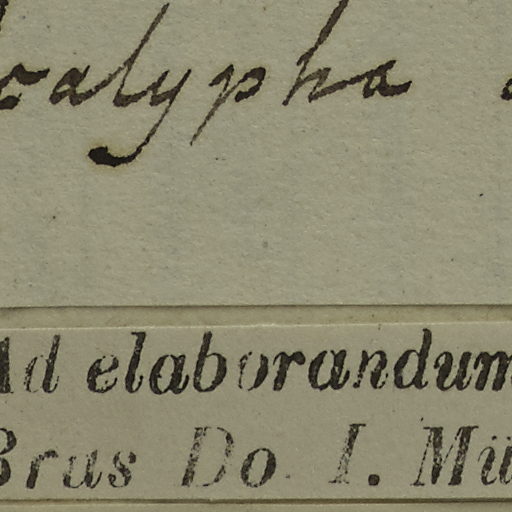 calypha
Ad elaborandum
Brus Do. I. Mü